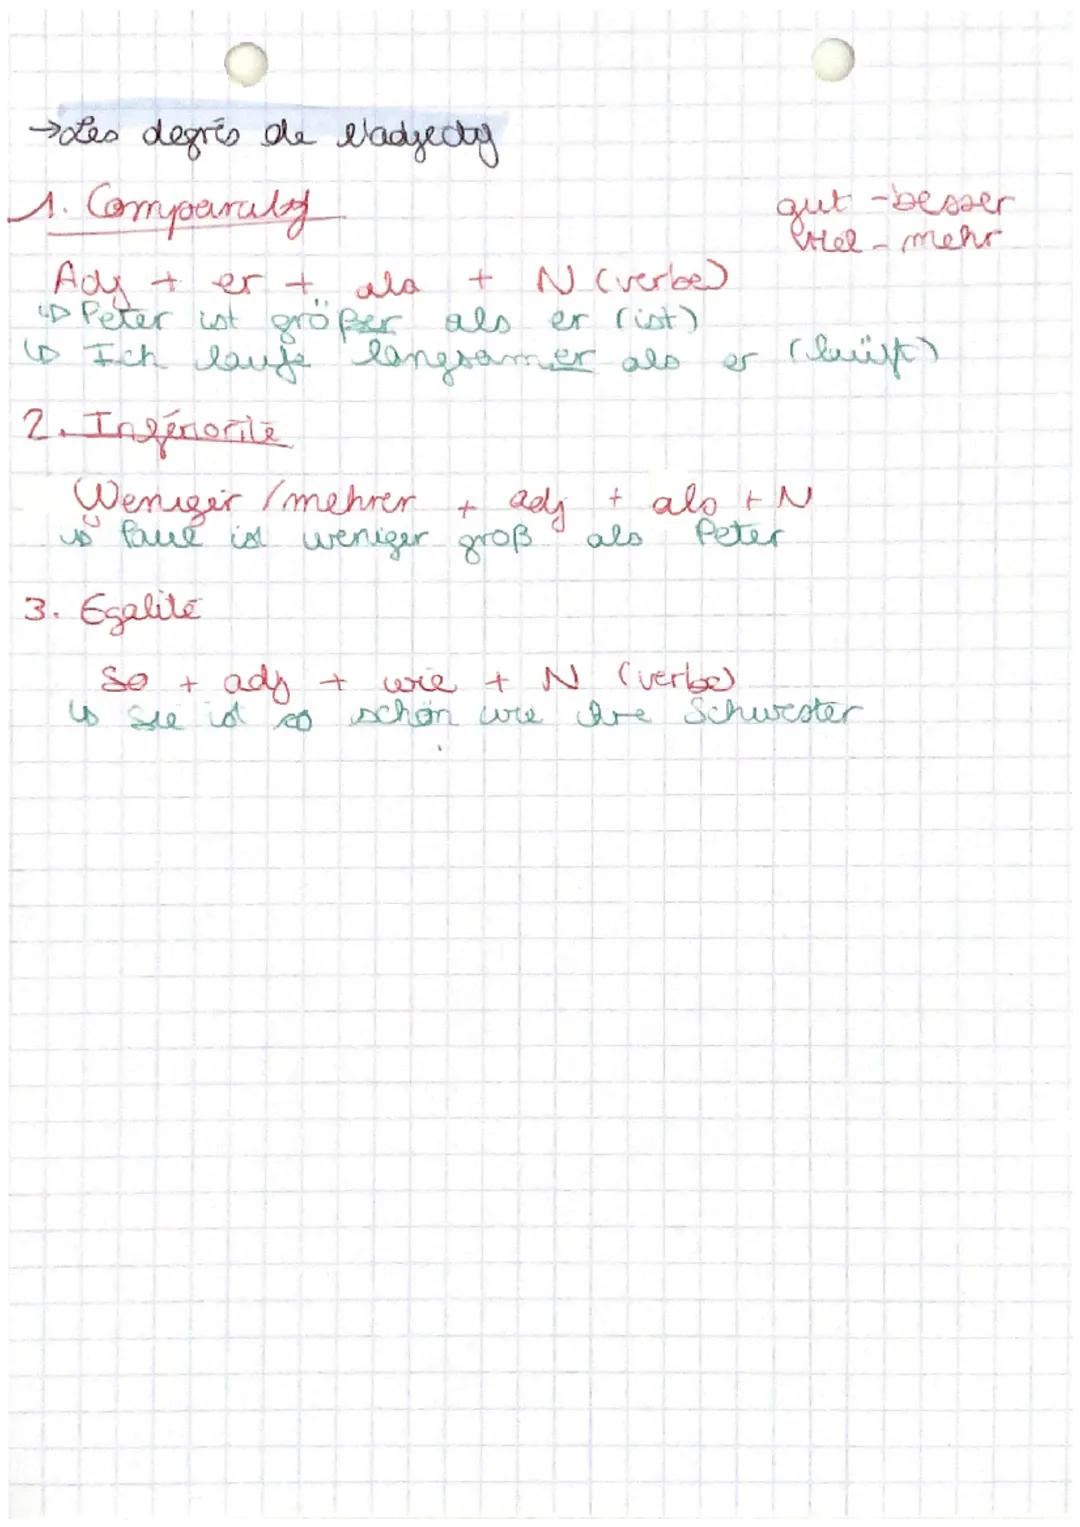 → Les degrés de l'adjectif
1. Comparatif
gut - besser
viel - mehr
Adj + er + als + N (verbe)
↳ Peter ist größer als er (ist)
↳ Ich laufe langsamer als er (läuft)
2. Inférioritė
Weniger / mehrer + adj + als + N
↳ Paul ist weniger groß als Peter
3. Egalité
So + adj + wie + N (verbe)
↳ Sie ist so schön wie ihre Schwester